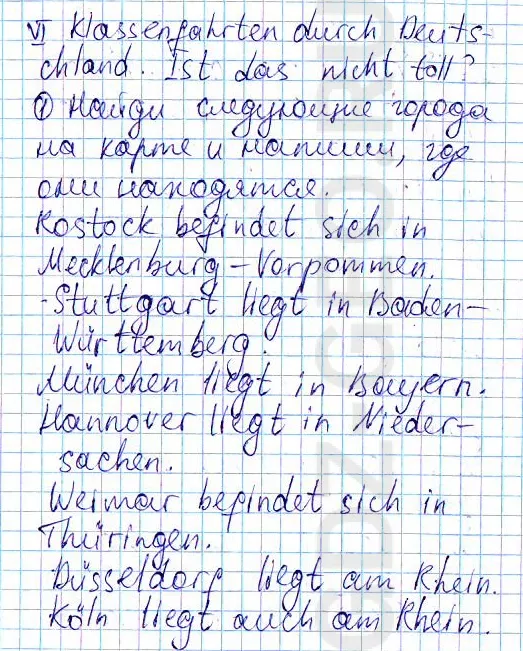 VI Klassenfahrten durch Deuts-
chland. Ist das nicht toll?
① Найди следующие города
на карте и напиши, где
они находятся.
Rostock befindet sich in
Mecklenburg – Vorpommen.
- Stuttgart liegt in Baden –
Württemberg.
München liegt in Bayern.
Hannover liegt in Nieder-
sachen.
Weimar befindet sich in
Thüringen.
Düsseldorf liegt am Rhein.
Köln liegt auch am Rhein.